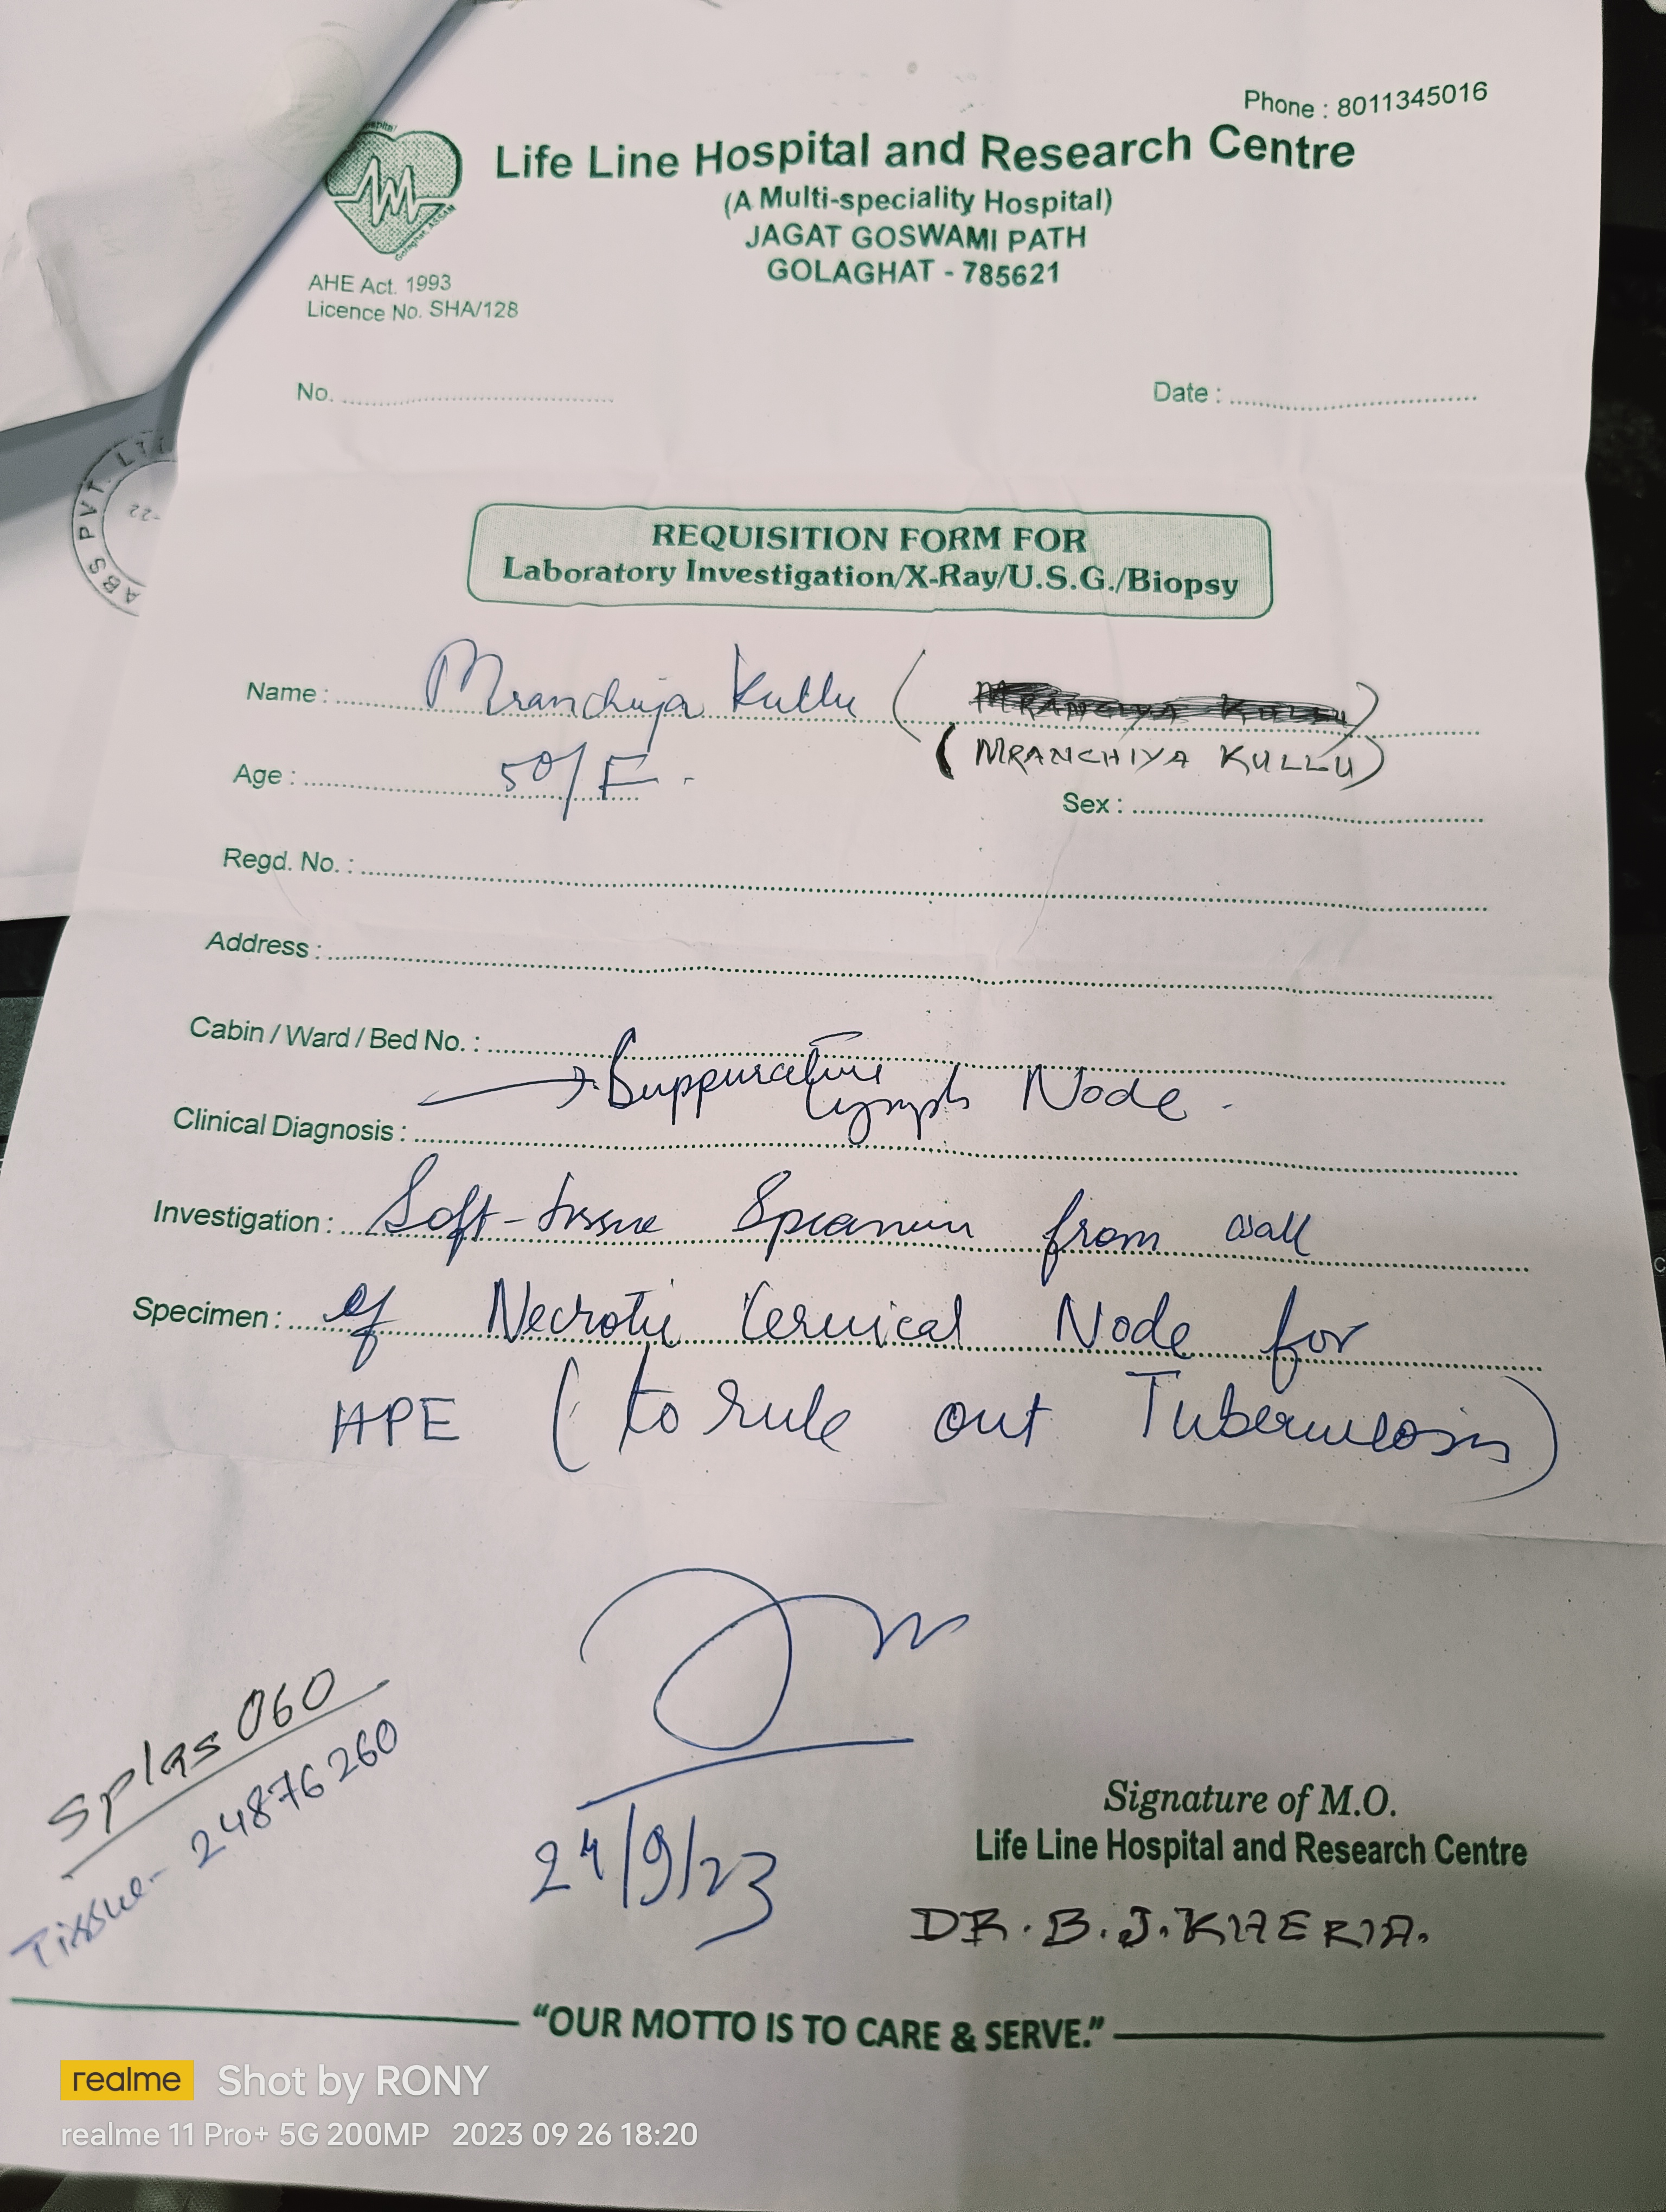 Phone : 8011345016
Life Line Hospital and Research Centre
(A Multi-speciality Hospital)
JAGAT GOSWAMI PATH
GOLAGHAT - 785621
Golaghat, ASSAM
AHE Act. 1993
Licence No. SHA/128
No.
Date :
ABS PVT. LT
REQUISITION FORM FOR
Laboratory Investigation/X-Ray/U.S.G./Biopsy
Name : Mranchiya Kullu (
(MRANCHIYA KULLU)
Age : 50/F.
Sex :
Regd. No. :
Address :
Cabin / Ward / Bed No. :
→ Suppurative Lymph Node.
Clinical Diagnosis :
Investigation : Soft-tissue Specimen from wall
Specimen : of Necrotic Cervical Node for
HPE (to rule out Tuberculosis)
Splas 060
Tissue - 24876260
24/9/23
Signature of M.O.
Life Line Hospital and Research Centre
DR. B. J. KHERIA.
"OUR MOTTO IS TO CARE & SERVE."
realme Shot by RONY
realme 11 Pro+ 5G 200MP 2023 09 26 18:20